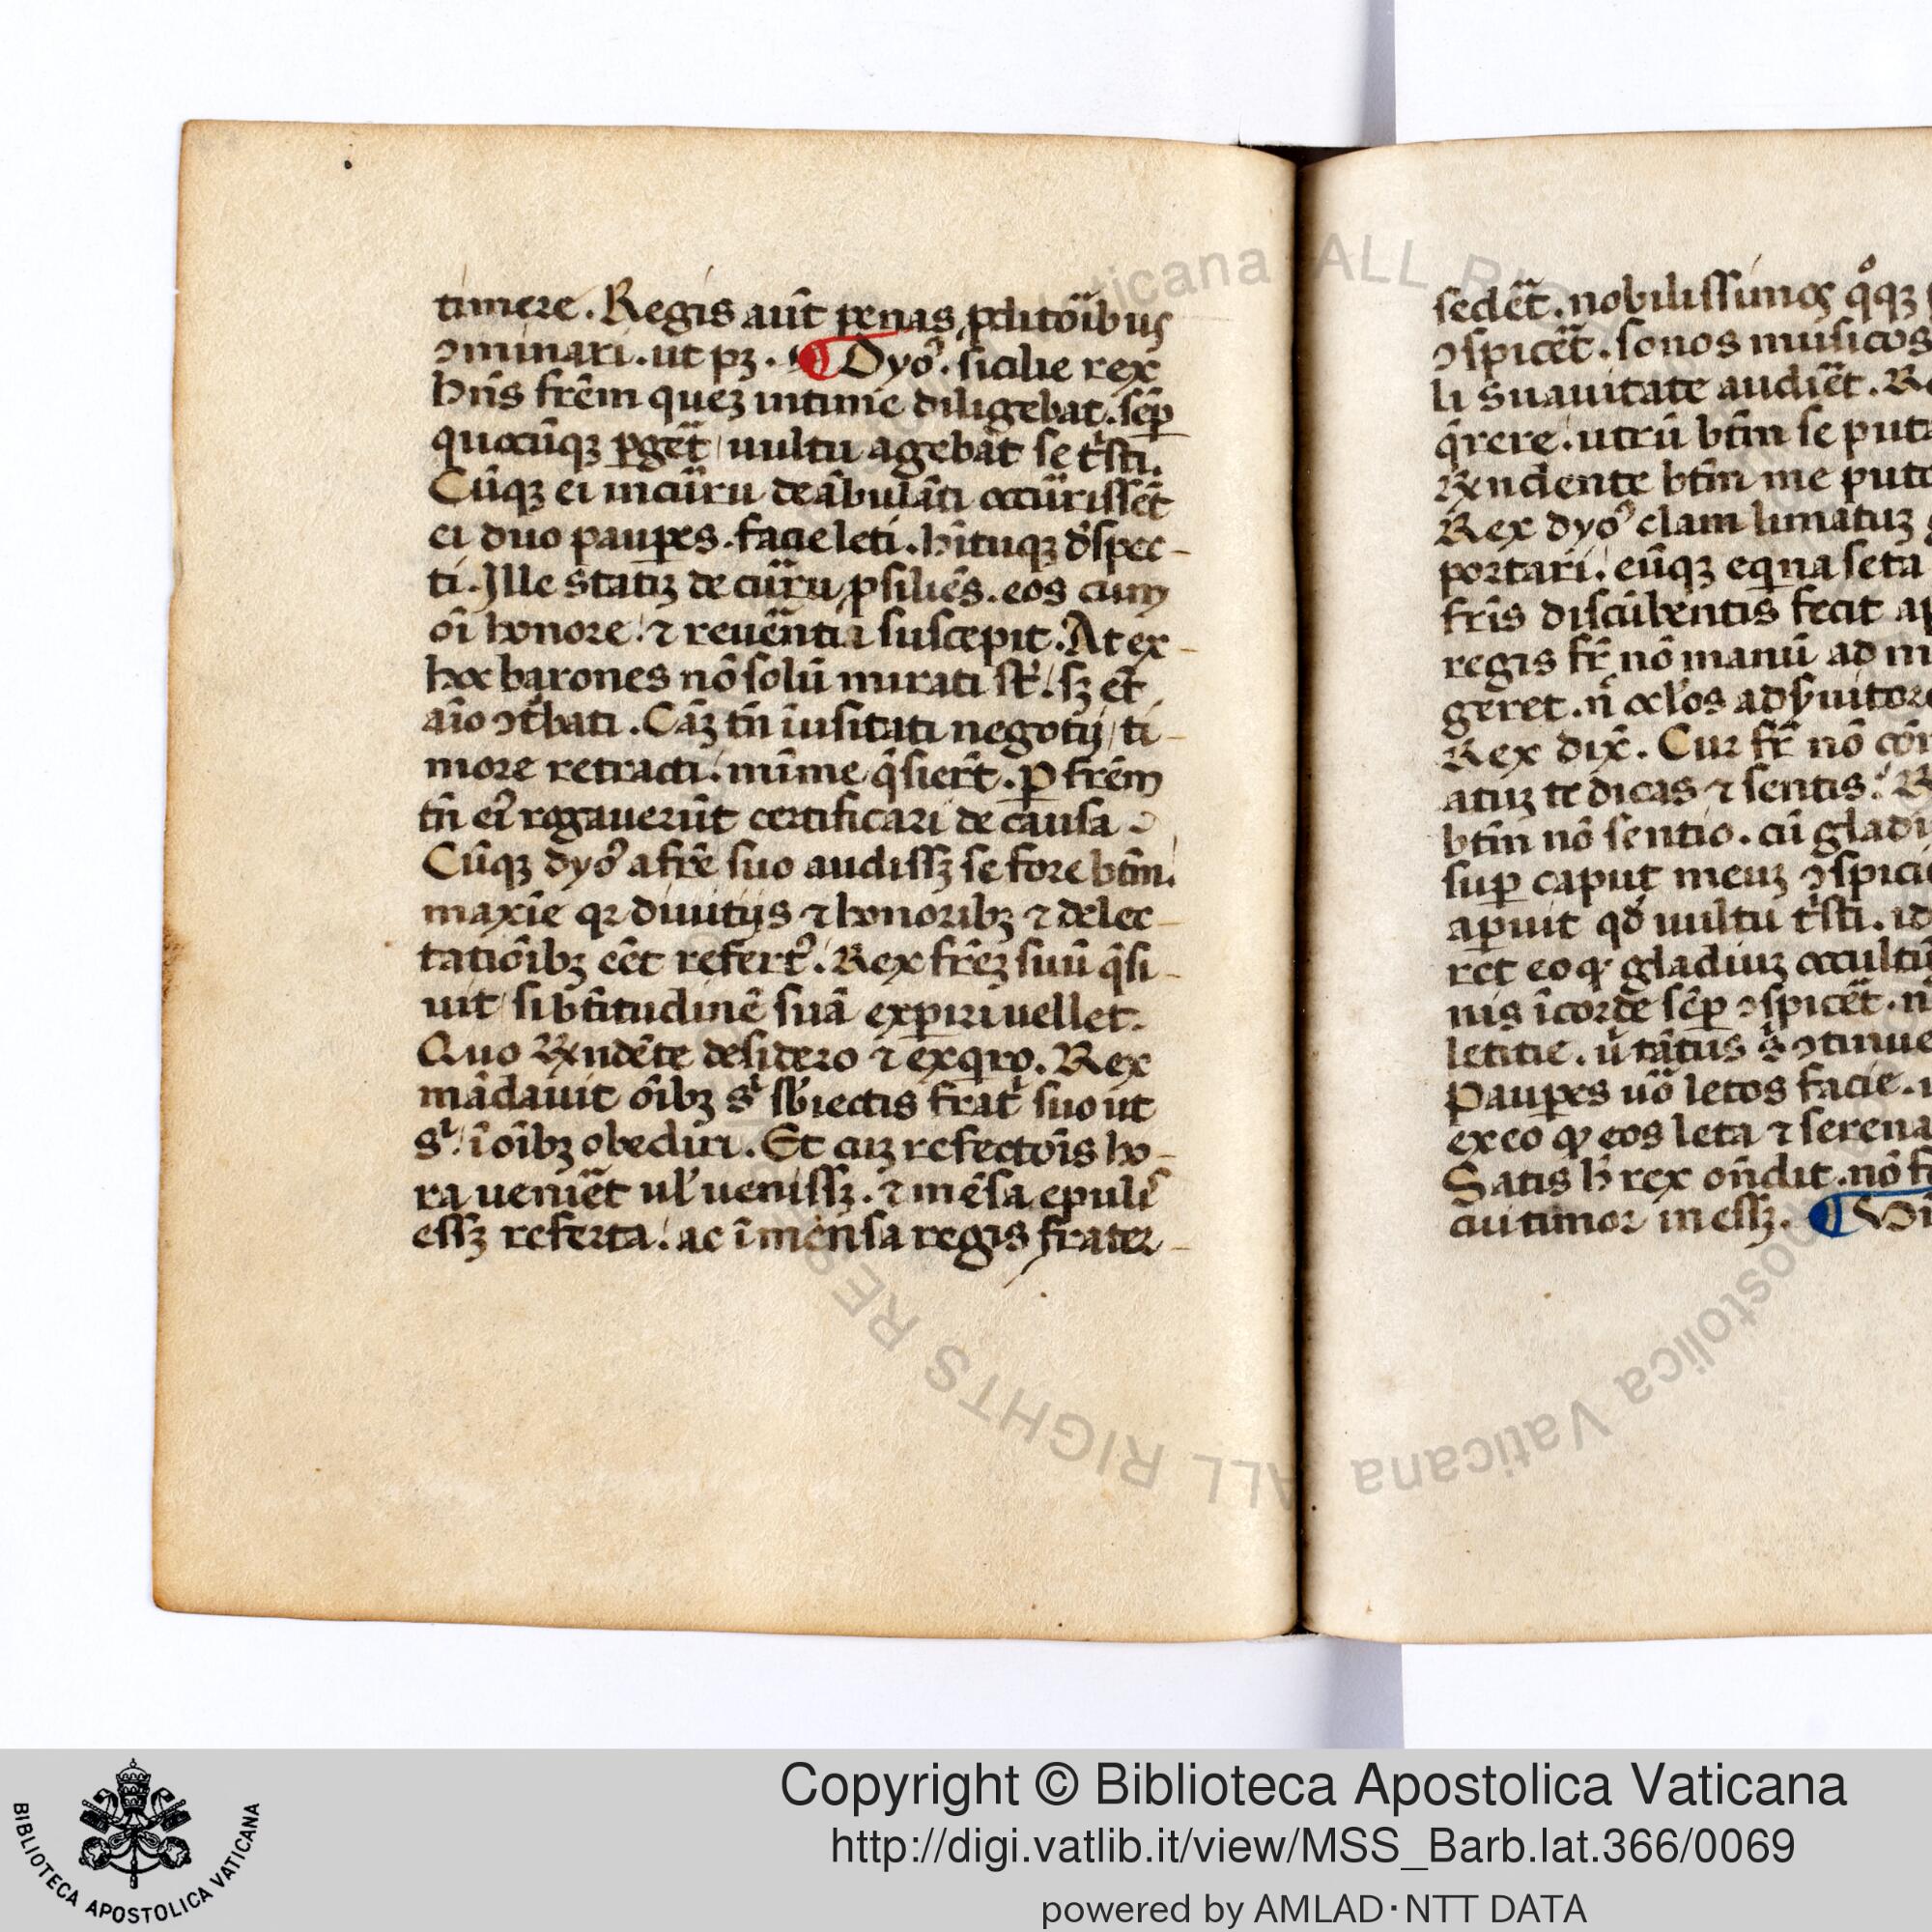 timere. Regis aut̄ penas ꝓditōibus
ꝯminari. ut pꝫ. ¶ Dyo᷒. sicilie rex
hn̄s frēm queꝫ intime diligebat. sēꝑ
quocūqꝫ ꝑgēt uultu agebāt se tͥsti.
Cūqꝫ ei in cūru deābulāti occūrissēt
ei duo pauꝑes. facie leti. hītuqꝫ dͥspec-
ti. Ille statiꝫ de cūru ꝓsiliēs. eos cum
oī honore. ⁊ reuēntia suscepit. At ex-
hoc barones nō solū mirati sͭ. sꝫ et̄
aīo ꝯtͬbati. Cāꝫ tn̄ īusitati negotij ti-
more retracti. mīme qͥsiert̄. ꝑ frēm
tn̄ eiꝰ rogauerūt certificari de causa
Cūqꝫ dyo᷒ a frē suo audissꝫ se fore btm̄.
maxīe qꝛ diuitijs ⁊ honoribꝫ ⁊ delec-
tatiōibꝫ eēt refertꝰ. Rex frēꝫ suū qͥsi-
uit si btītudinē suā exꝑiri uellet.
Quo Rx̄ndēte desidero ⁊ exqͥro. Rex
mādauit oībꝫ sͥ sb̄iectis fratͥ suo ut
sͥ ī oībꝫ obediri. Et cuꝫ refectōis ho-
ra ueniēt ul̓ uenissꝫ. ⁊ mēsa epulis
essꝫ referta. ac ī mensa regis frater-
sedēt. nobilissimoꝝ qͦqꝫ
ꝯspicēt. sonos musicos
li suauitate audiēt.
qͥrere. utrū btm̄ se
Rx̄ndente btm̄ me
Rex dyo᷒ clam limatuꝫ
portari. eūqꝫ eqͥna seta
frīs discūbentis fecit
regis fr̄ nō manū ad
geret. n̄ ocl̓os ad
Rex dix̄. Cur fr̄ nō
atuꝫ te dicas ⁊ sentis.
btm̄ nō sentio. cū
suꝑ caput meuꝫ
aꝑuit qd̓ uultu tͥsti.
ret eo ꝙ gladiuꝫ
nis ī corde sēꝑ ꝯspicēt.
letitie. ū tātus
Pauꝑes uō letos facie.
ex eo ꝙ eos leta ⁊ serena
Satis h̄ rex on̄dit. nō
cui timor in essꝫ. ¶
Copyright © Biblioteca Apostolica Vaticana
http://digi.vatlib.it/view/MSS_Barb.lat.366/0069
powered by AMLAD·NTT DATA
BIBLIOTECA APOSTOLICA VATICANA